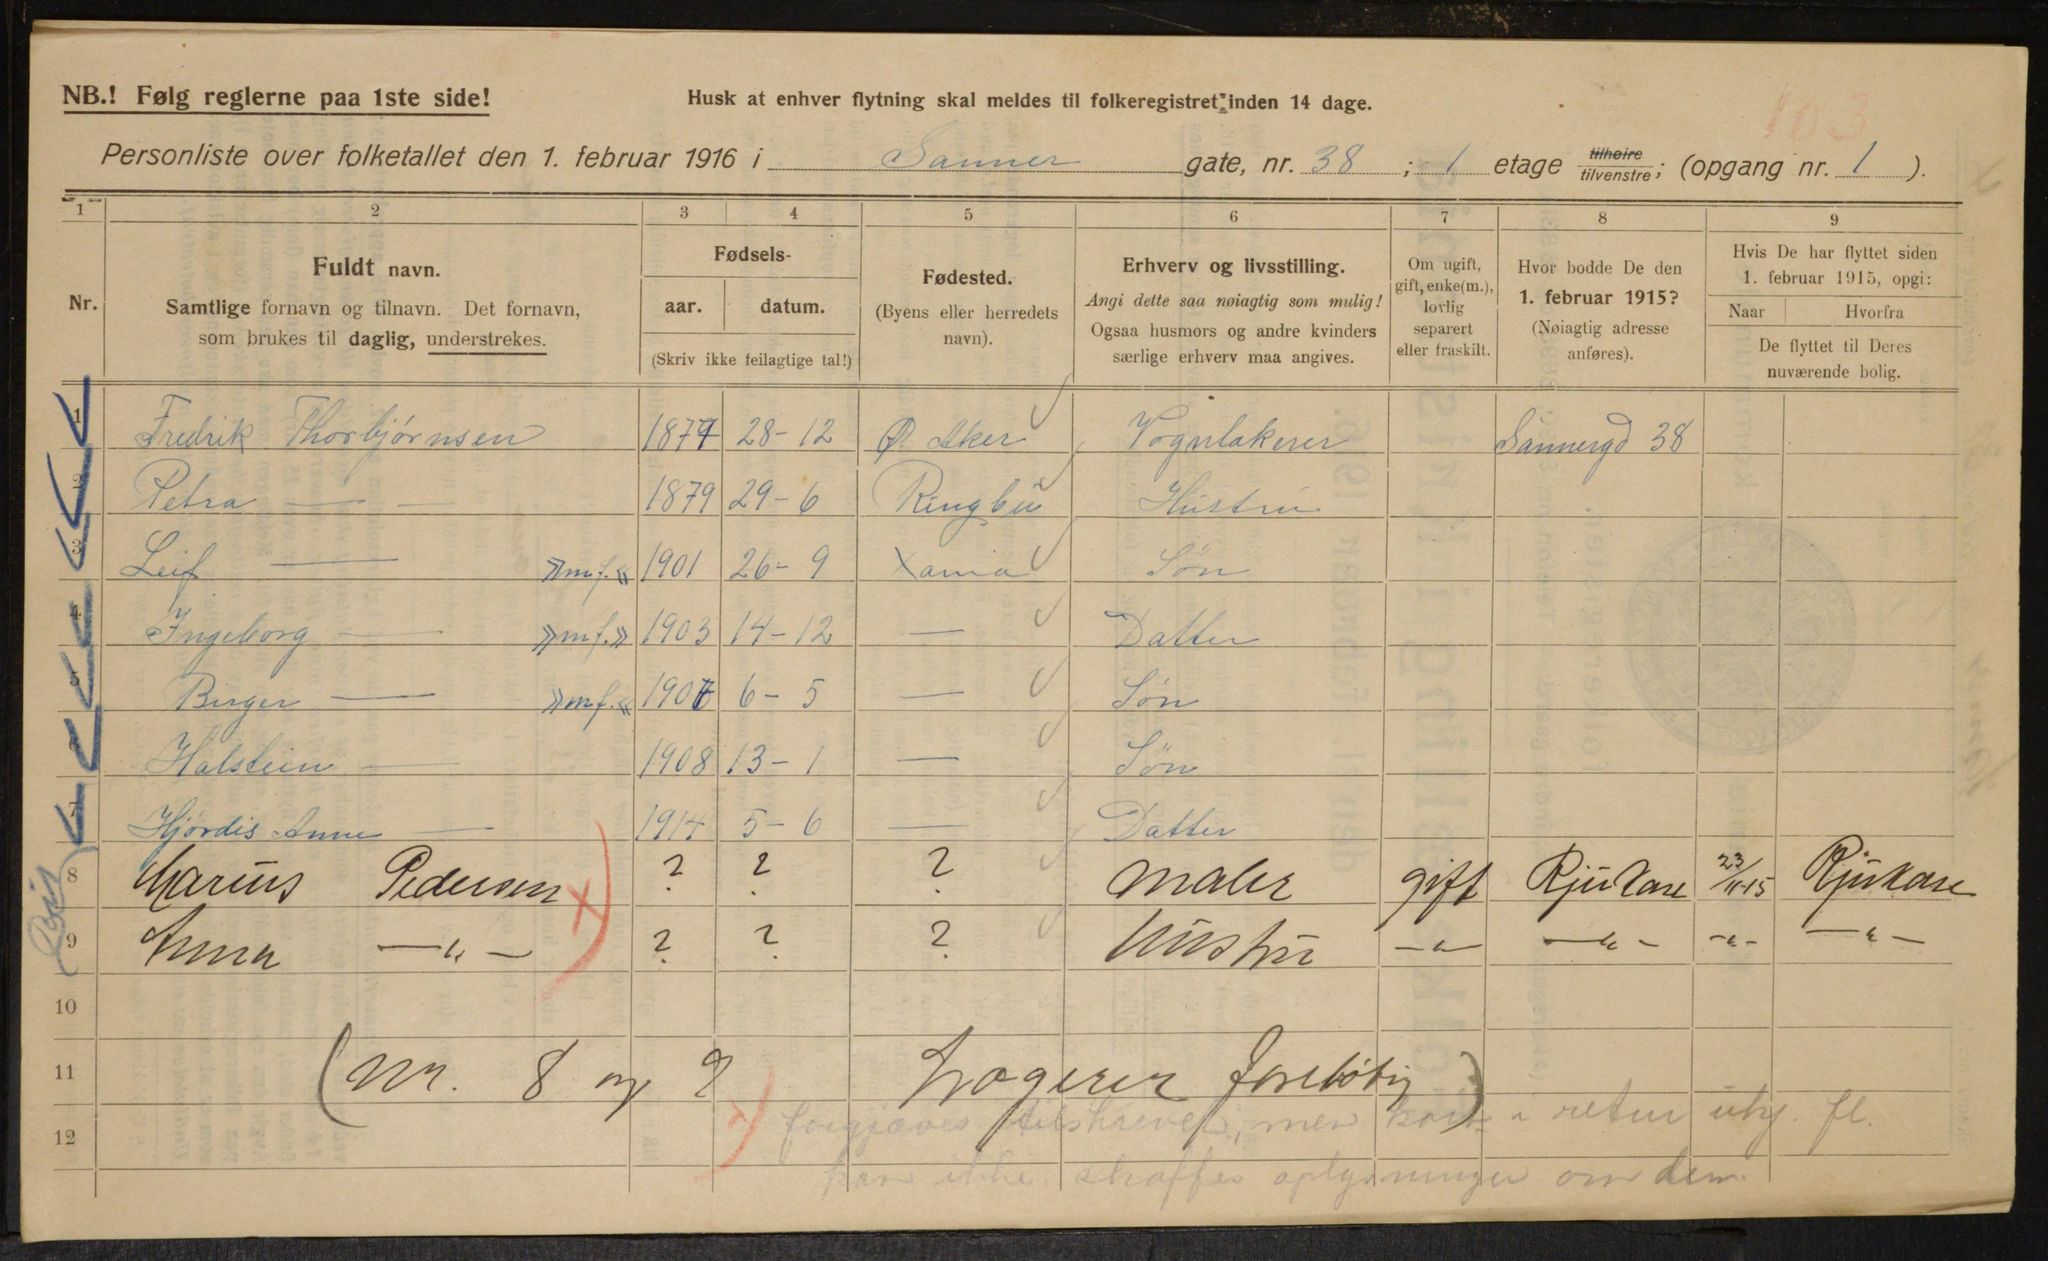 NB.! Følg reglerne paa 1ste side!
Husk at enhver flytning skal meldes til folkeregistret inden 14 dage.
103
Personliste over folketallet den 1. februar 1916 i Sanner gate, nr. 38 ; 1 etage tilhøire tilvenstre ; (opgang nr. 1 ).
1 2 3 4 5 6 7 8 9
Nr.
Fuldt navn.
Samtlige fornavn og tilnavn. Det fornavn,
som brukes til daglig, understrekes.
Fødsels-
aar. datum.
(Skriv ikke feilagtige tal!)
Fødested.
(Byens eller herredets
navn).
Erhverv og livsstilling.
Angi dette saa nøiagtig som mulig!
Ogsaa husmors og andre kvinders
særlige erhverv maa angives.
Om ugift,
gift, enke(m.),
lovlig
separert
eller fraskilt.
Hvor bodde De den
1. februar 1915?
(Nøiagtig adresse
anføres).
Hvis De har flyttet siden
1. februar 1915, opgi:
Naar Hvorfra
De flyttet til Deres
nuværende bolig.
1 Fredrik Thorbjørnsen 1877 28-12 Ø. Aker Vognlakerer Sannergd 38
2 Petra — — 1879 29-6 Ringbu Hustru
3 Leif — »m.f.« 1901 26-9 Xania Søn
4 Ingeborg — »m.f.» 1903 14-12 — Datter
5 Birger — »m.f.« 1906 6-5 — Søn
6 Halstein — 1908 13-1 — Søn
7 Hjørdis Anne — 1914 5-6 — Datter
8 Marius Pedersen ? ? ? Maler gift Rjukan 23/11-15 Rjukan
9 Anna —„— ? ? ? Hustru —„— —„— —„— —„—
10
11 (Nr. 8 og 9 Logerer foreløbig)
12 forgjæves tilskrevet, men kort i retur ubg. fl.
kan ikke skaffes oplysninger om dem.